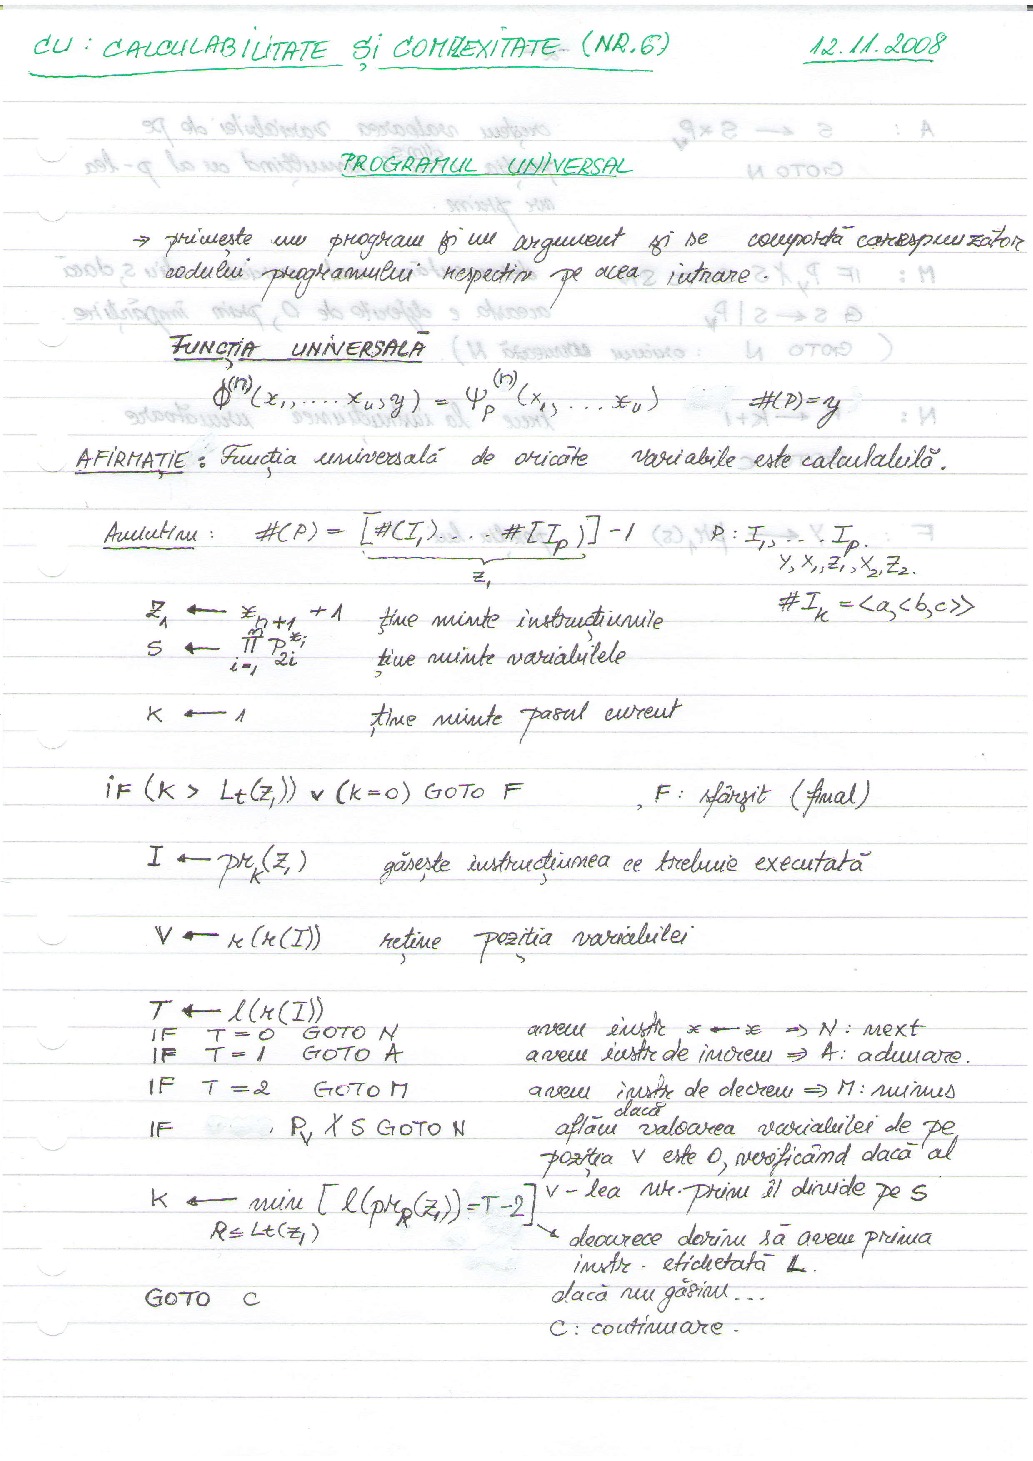 CU: CALCULABILITATE ȘI COMPLEXITATE (NR.6) 12.11.2008
PROGRAMUL UNIVERSAL
→ primește un program și un argument și se comportă corespunzător
codului programului respectiv pe acea intrare.
FUNCȚIA UNIVERSALĂ
Φ^(n)(x₁, .... xₙ, y) = Ψ_P^(n)(x₁, ... xₙ) #(P)=y
AFIRMAȚIE: Funcția universală de oricâte variabile este calculabilă.
Amintim: #(P) = [#(I₁).... #(I_p)]-1 P: I₁, ... I_p.
z₁ Y, X₁, Z₁, X₂, Z₂.
#I_k = <a,<b,c>>
Z₁ ← x_{n+1} + 1 ține minte instrucțiunile
S ← ∏_{i=1}^{n} P_{2i}^{x_i} ține minte variabilele
K ← 1 ține minte pasul curent
IF (K > Lt(Z₁)) ∨ (K=0) GOTO F , F: sfârșit (final)
I ← pr_K(Z₁) găsește instrucțiunea ce trebuie executată
V ← r(r(I)) reține poziția variabilei
T ← l(r(I))
IF T=0 GOTO N avem instr x ← x ⇒ N: next
IF T=1 GOTO A avem instr de increm ⇒ A: adunare.
IF T=2 GOTO M avem instr de decrem ⇒ M: minus
IF P_V ∤ S GOTO N aflăm dacă valoarea variabilei de pe
poziția V este 0, verificând dacă al
K ← min [l(pr_R(Z₁))=T-2] V-lea nr. prim îl divide pe S
R≤Lt(Z₁) deoarece dorim să avem prima
instr. etichetată L.
GOTO C dacă nu găsim...
C: continuare.